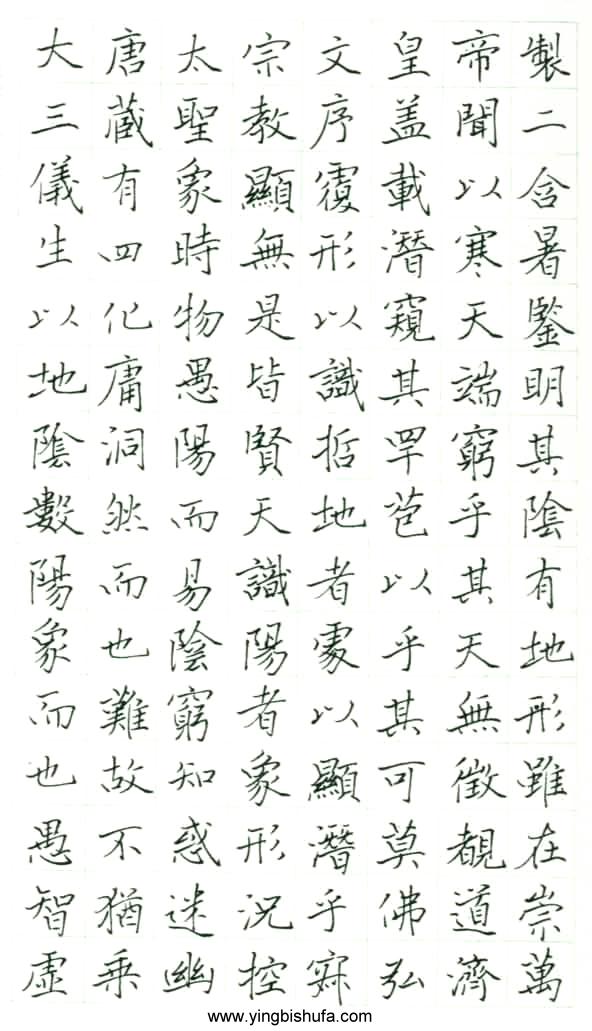 大唐太宗文皇帝製
三藏聖教序盖聞二
儀有象顯覆載以含
生四時無形潛寒暑
以化物是以窺天鑒
地庸愚皆識其端明
陰洞陽賢哲罕窮其
數然而天地苞乎陰
陽而易識者以其有
象也陰陽處乎天地
而難窮者以其無形
也故知象顯可徵雖
愚不惑形潛莫覩在
智猶迷況乎佛道崇
虛乘幽控寂弘濟萬
www.yingbishufa.com